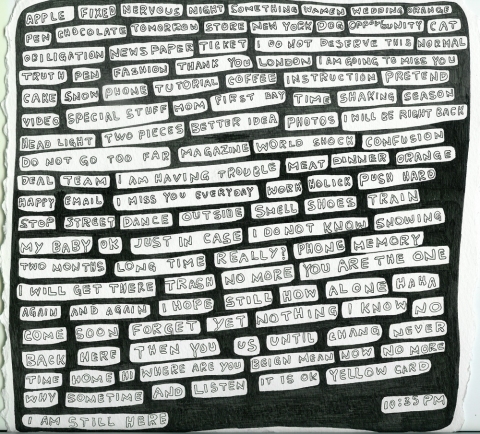 APPLE FIXED NERVOUS NIGHT SOMETHING WAMEN WEDDING ORANGE
PEN CHOCOLATE TOMORROW STORE NEW YORK DOG OPPORTUNITY CAT
OBILIGATION NEWS PAPER TICKET I DO NOT DESERVE THIS NORMAL
TRUTH PEN FASHION THANK YOU LONDON I AM GOING TO MISS YOU
CAKE SNOW PHONE TUTORIAL COFFEE INSTRUCTION PRETEND
VIDEO SPECIAL STUFF MOM FIRST DAY TIME SHAKING SEASON
HEAD LIGHT TWO PIECES BETTER IDEA PHOTOS I WILL BE RIGHT BACK
DO NOT GO TOO FAR MAGAZINE WORLD SHOCK CONFUSION
DEAL TEAM I AM HAVING TROUBLE MEAT DINNER ORANGE
HAPPY EMAIL I MISS YOU EVERYDAY WORK HOLICK PUSH HARD
STOP STREET DANCE OUTSIDE SMELL SHOES TRAIN
MY BABY OK JUST IN CASE I DO NOT KNOW SNOWING
TWO MONTHS LONG TIME REALLY! PHONE MEMORY
I WILL GET THERE TRASH NO MORE YOU ARE THE ONE
AGAIN AND AGAIN I HOPE STILL HOW ALONE HAHA
COME SOON FORGET YET NOTHING I KNOW NO
BACK HERE THEN YOU US UNTIL CHANG NEVER
TIME HOME HI WHERE ARE YOU BEIGN MEAN NOW NO MORE
WHY SOMETIME AND LISTEN IT IS OK YELLOW CARD
I AM STILL HERE 10:25 PM